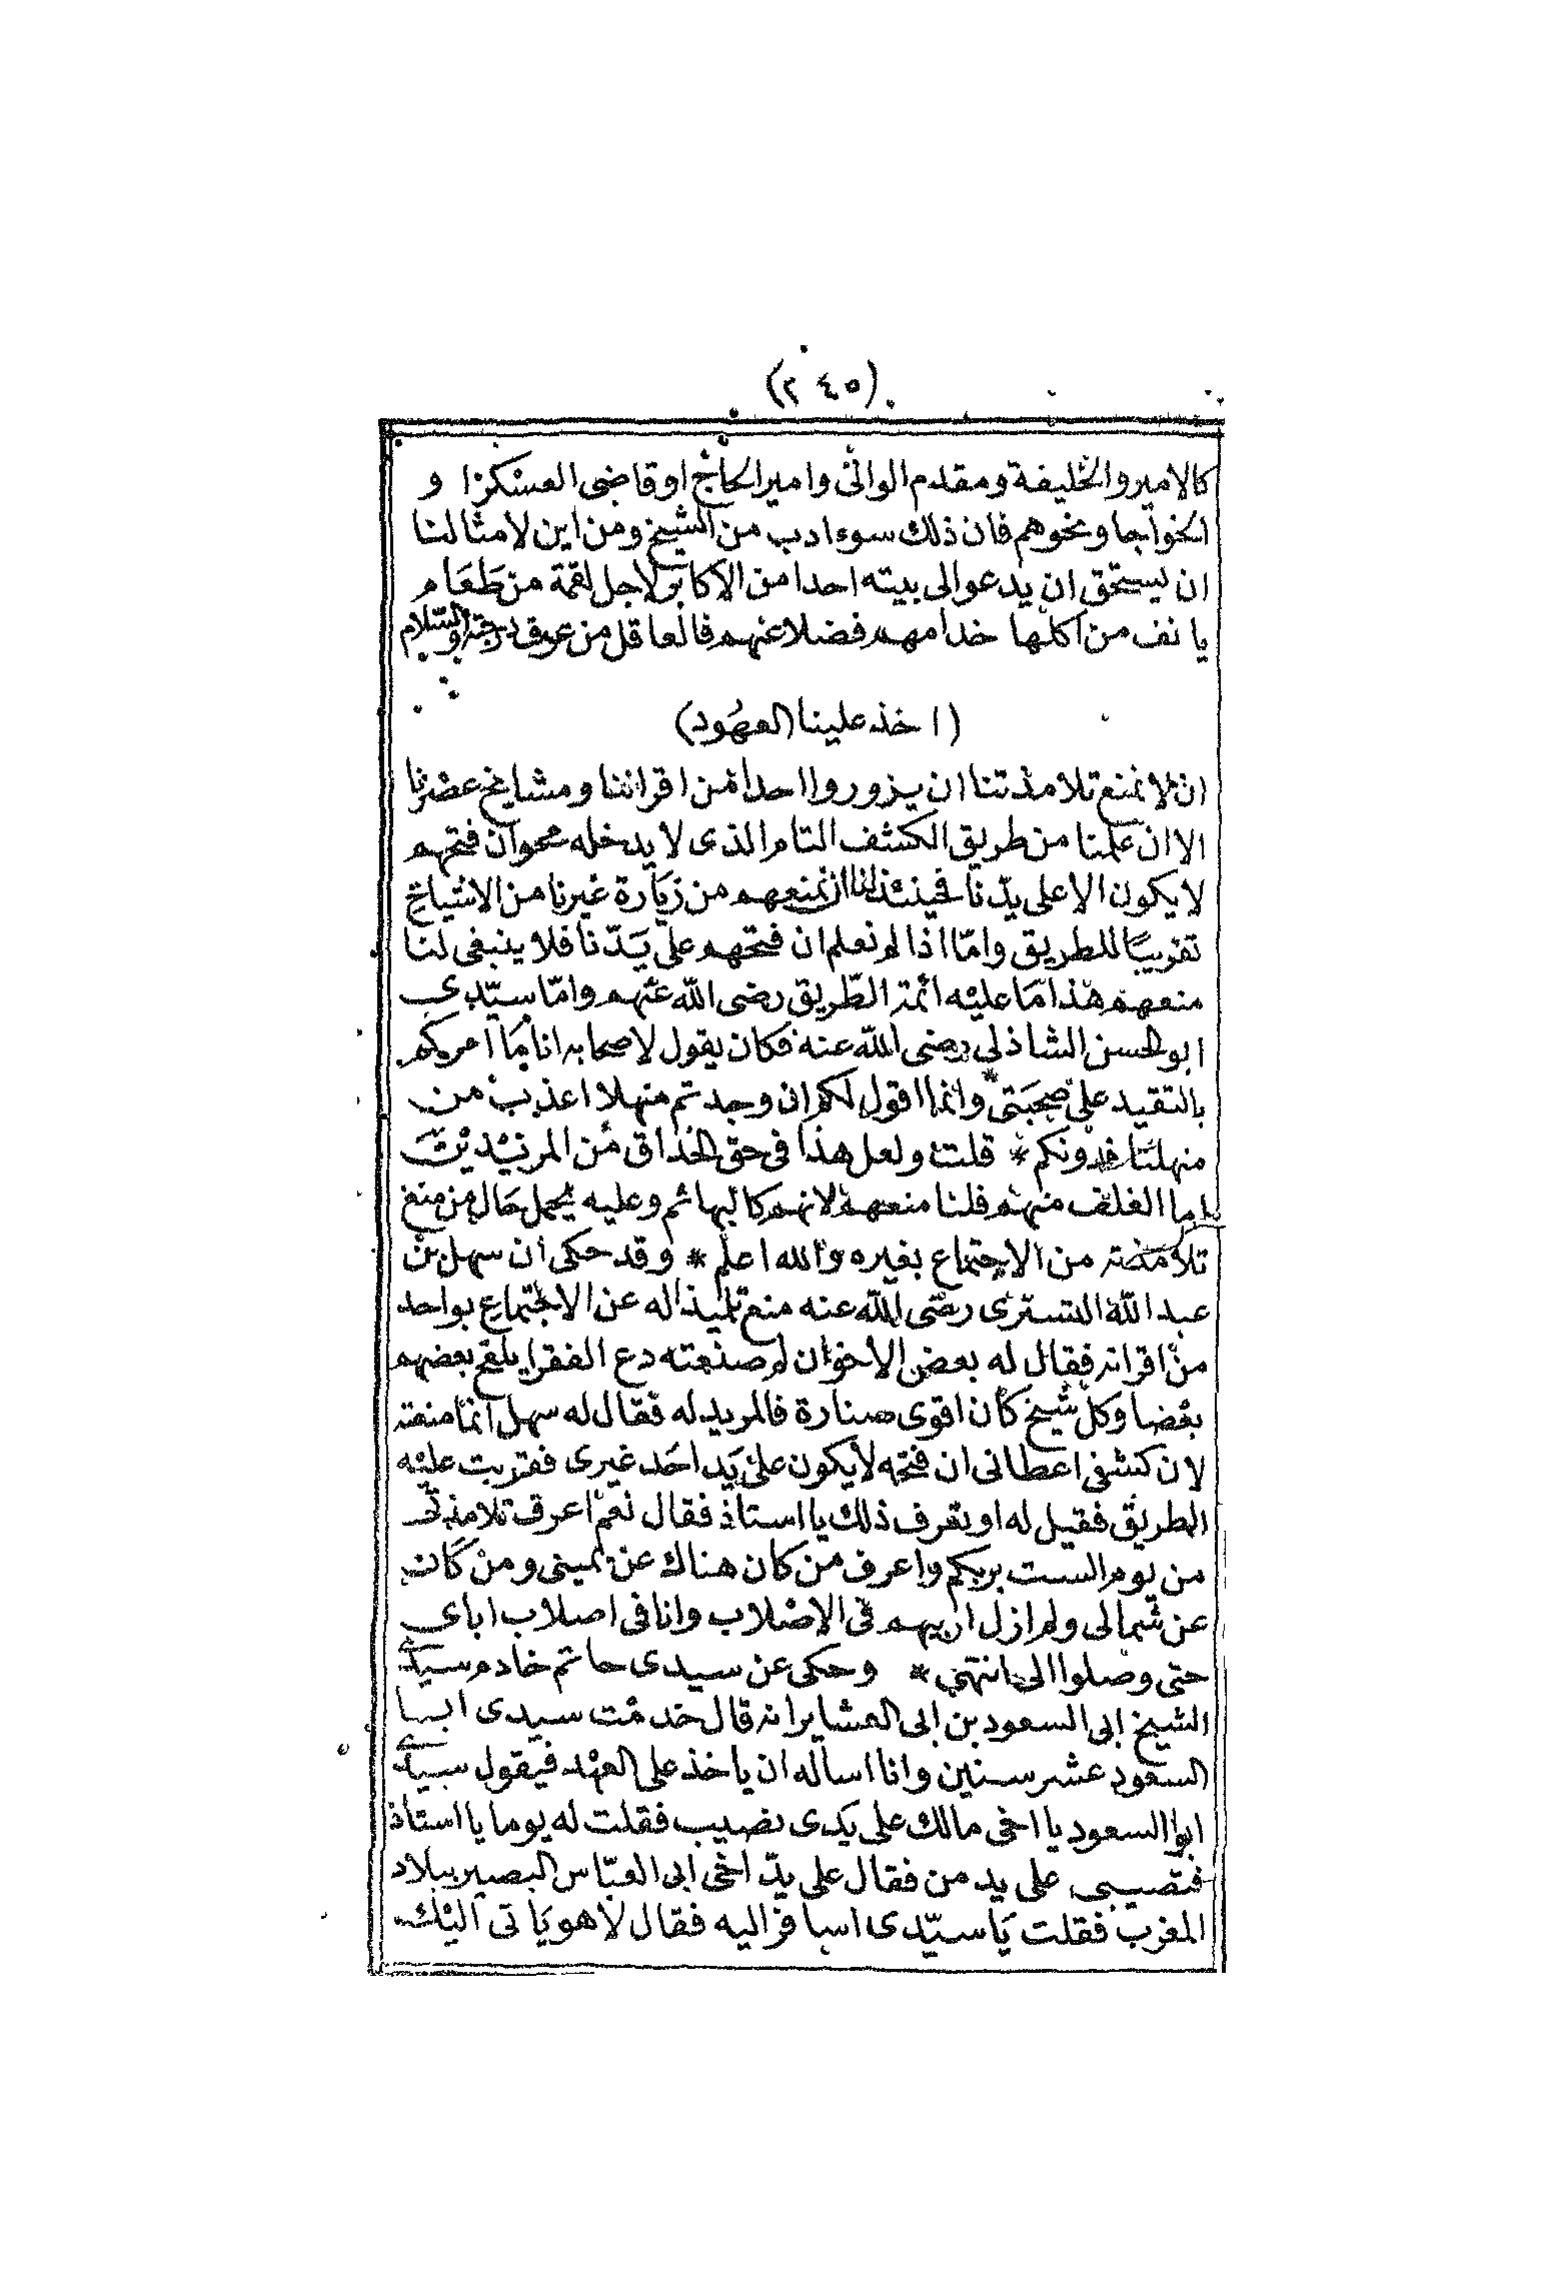 (٢٤٥)
كالامير والخليفة ومقدم الوالى وامير الحاج اوقاضى العسكر او
الخواجا ونحوهم فان ذلك سوء ادب من الشيخ ومن اين لامثالنا
ان يستحق ان يدعو الى بيته احدا من الاكابر لاجل لقمة من طعام
يانف من اكلها خدامهم فضلا عنهم فالعاقل من عرف درجته والسلام
(اخذ علينا العهود)
ان لا نمنع تلامذتنا ان يزوروا احدا من اقراننا ومشايخ عصرنا
الا ان علمنا من طريق الكشف التام الذى لا يدخله محو ان فتحهم
لا يكون الا على يدنا فحينئذ لنا ان نمنعهم من زيارة غيرنا من الاشياخ
تقريبا للطريق واما اذا لم نعلم ان فتحهم على يدنا فلا ينبغى لنا
منعهم هذا ما عليه ائمة الطريق رضى الله عنهم واما سيدى
ابو الحسن الشاذلى رضى الله عنه فكان يقول لاصحابه انا ما آمركم
بالتقيد على صحبتى وانما اقول لكم ان وجدتم منهلا اعذب من
منهلنا فدونكم * قلت ولعل هذا فى حق الحذاق من المريدين
اما الغلف منهم فلنا منعهم لانهم كالبهائم وعليه يحمل حال من منع
تلامذته من الاجتماع بغيره والله اعلم * وقد حكى ان سهل بن
عبد الله التسترى رضى الله عنه منع تلميذا له عن الاجتماع بواحد
من اقرانه فقال له بعض الاخوان لم صنعته دع الفقرا يلقح بعضهم
بعضا وكل شيخ كان اقوى صنارة فالمريد له فقال له سهل انما منعته
لان كشفى اعطانى ان فتحه لا يكون على يد احد غيرى فقربت عليه
الطريق فقيل له او يعرف ذلك يا استاذ فقال نعم اعرف تلامذتى
من يوم الست بربكم واعرف من كان هناك عن يمينى ومن كان
عن شمالى ولم ازل اربيهم فى الاصلاب وانا فى اصلاب اباى
حتى وصلوا الى انتهى * وحكى عن سيدى حاتم خادم سيدى
الشيخ ابى السعود بن ابى العشاير انه قال خدمت سيدى ابا
السعود عشر سنين وانا اساله ان ياخذ على العهد فيقول سيدى
ابو السعود يا اخى مالك على يدى نصيب فقلت له يوما يا استاذ
فنصيبى على يد من فقال على يد اخى ابى العباس البصير ببلاد
المغرب فقلت يا سيدى اسافر اليه فقال لا هو ياتى اليك